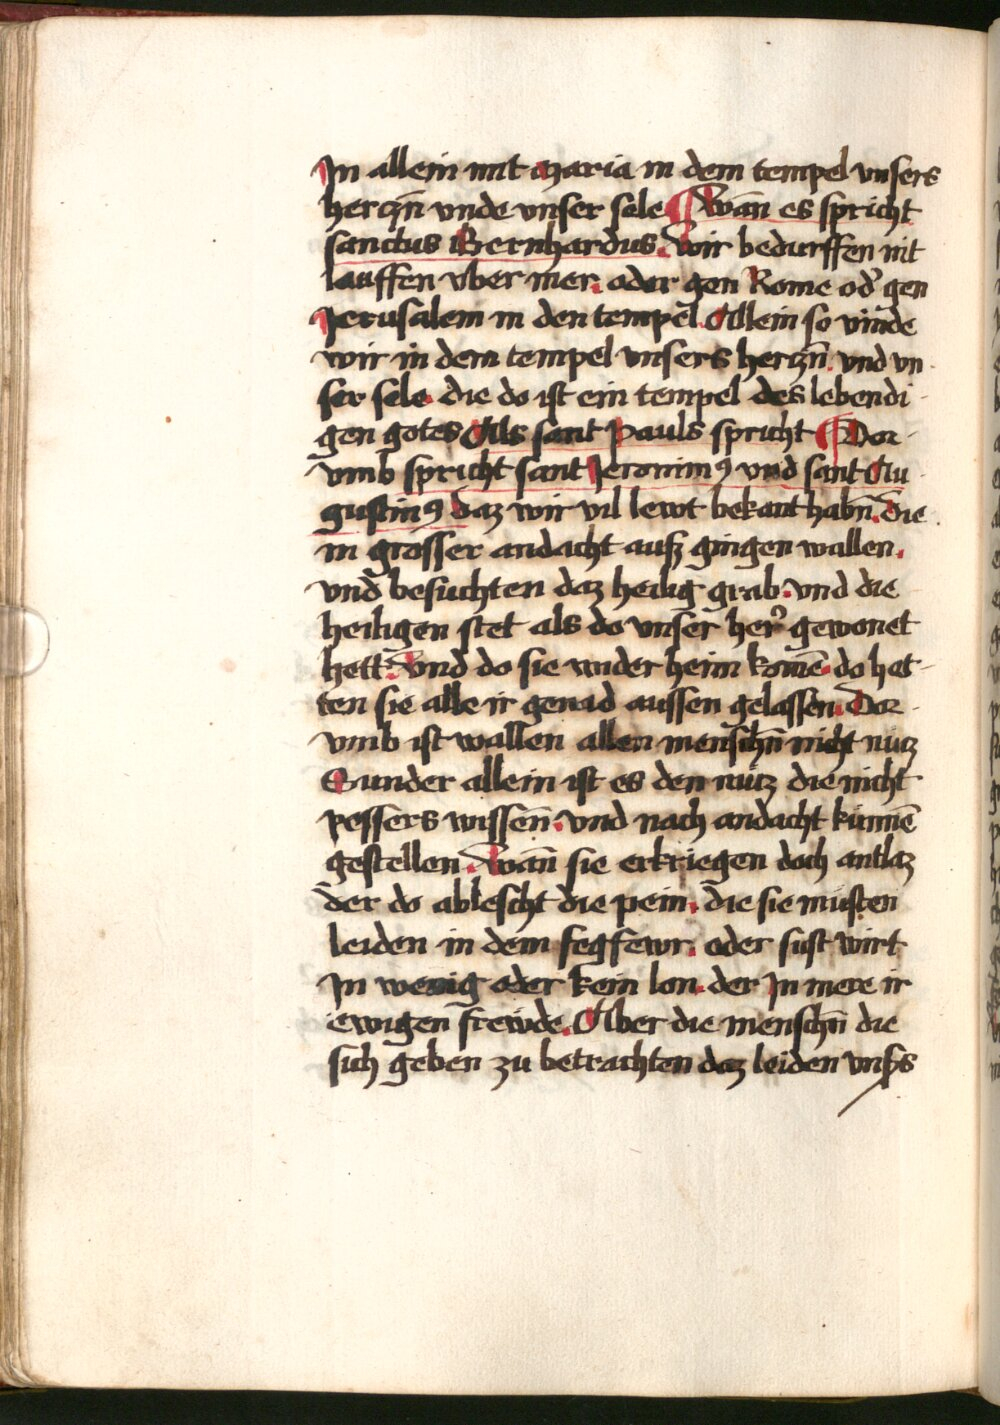 Jn allein mit maria in dem tempel vnsers
herczn̄ vnde vnser sele ¶ Wān es spricht
sanctus Bernhardus. Wir bedurffen nit
lauffen vber mer. oder gen Rome od̓ gen
Jerusalem in den tempel. Allein so vinde
wir in dem tempel vnsers herczn̄. vnd vn
ser sele. die do ist ein tempel des lebendi
gen gotes Als sant Pauls spricht ¶ Dor
vmb spricht sant Jeronimꝰ vnd sant Au
gustinꝰ Daz wir vil lewt bekant habn̄. Die
in grosser andacht auß gingen wallen.
vnd besuchten daz heilig grab. vnd die
heiligen stet als do vnser her̓ gewonet
hett. Vnd do sie wider heim komē. do het
ten sie alle ir genad aussen gelassen. Dor
vmb ist wallen allen menschn̄ nicht nücz
Sunder allein ist es den nücz die nicht
pessers wissen. vnd nach andacht künnē
gestellen. Wān sie erkriegen doch antlaz
der do ablescht die pein. die sie müsten
leiden in dem fegfewr. oder sust wirt
Jn wenig oder kein lon. der Jn mere ir
ewigen frewde. Aber die menschn̄ die
sich geben zu betrachten daz leiden vnsʼs